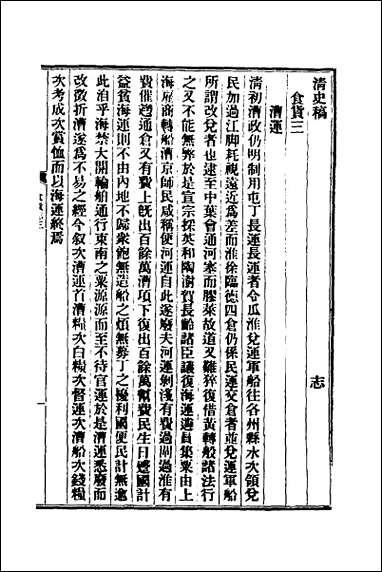 清史稿
食貨三 志
漕運
清初漕政仍明制用屯丁長運長運者令瓜淮兌運軍船往各州縣水次領兌
民加過江脚耗視遠近爲差而淮徐臨德四倉仍係民運交倉者並兌運軍船
所謂改兌者也逮至中葉會通河塞而膠萊故道又難猝復借黃轉般諸法行
之又不能無弊於是宣宗採英和陶澍賀長齡諸臣議復海運遴員集粟由上
海雇商轉船漕京師民咸稱便河運自此遂廢夫河運剝淺有費過閘過淮有
費催趲通倉又有費上旣出百餘萬漕項下復出百餘萬幫費民生日蹙國計
益貧海運則不由內地不歸衆飽無造船之煩無募丁之擾利國便民計無逾
此洎乎海禁大開輪船通行東南之粟源源而至不待官運於是漕運悉廢而
改徵折漕遂爲不易之經今敍次漕運首漕糧次白糧次督運次漕船次錢糧
次考成次賞恤而以海運終焉
一